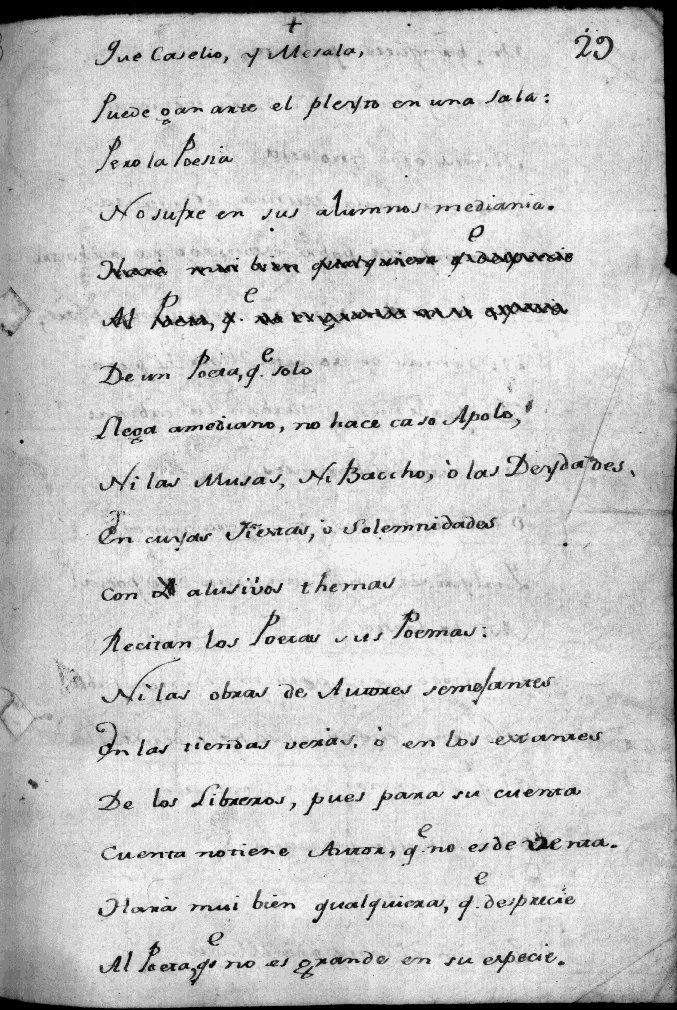 +
29
Que Caselio, y Mesala,
Puede ganarte el pleyto en una sala:
Pero la Poesia
No sufre en sus alumnos mediania.
Hara mui bien qualquiera q.e desprecie
Al Poeta, q.e no es grande en su especie
De un Poeta, q.e solo
Llega amediano, no hace caso Apolo,
Ni las Musas, Ni Baccho, ò las Deydades,
En cuyas Fiestas, ò Solemnidades
con alusivos themas
Recitan los Poetas sus Poemas:
Ni las obras de Autores semejantes
En las tiendas veràs, ò en los estantes
De los Libreros, pues para su cuenta
Cuenta notiene Autor, q.e no esde venta.
Harà mui bien qualquiera, q.e desprecie
Al Poeta, q.e no es grande en su especie.